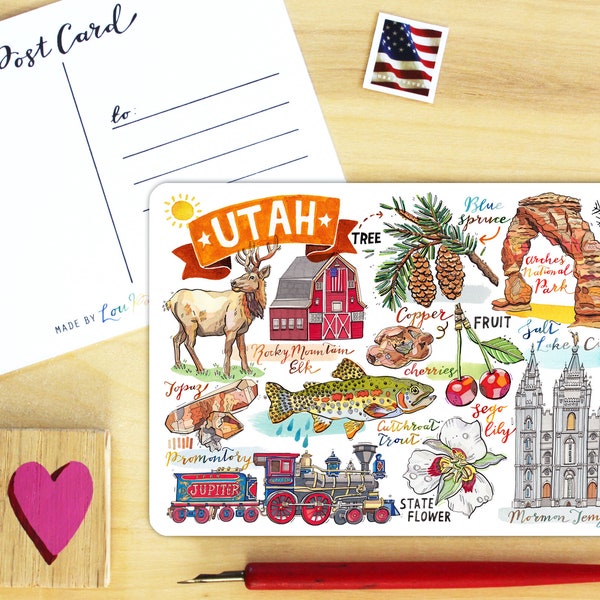 Post Card
to:
MADE BY Lou
UTAH
TREE
Blue
spruce
arches
National
Park
Rocky Mountain
Elk
Copper
FRUIT
cherries
Salt
Lake
Topaz
Cutthroat
trout
sego
lily
Promontory
JUPITER
STATE
FLOWER
Mormon